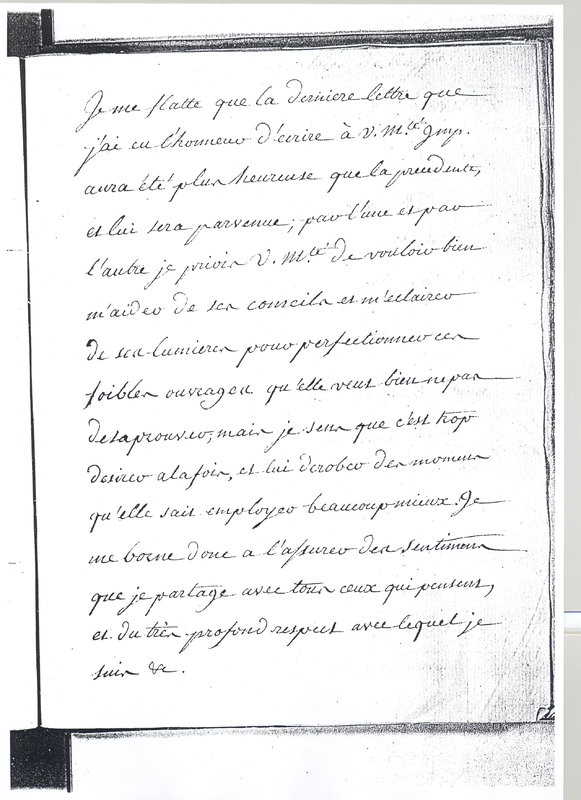 Je me flatte que la derniere lettre que
j'ai eu l'honneur d'écrire à V. M.té Imp.
aura été plus heureuse que la precedente,
et lui sera parvenue; par l'une et par
l'autre je priois V. M.té de vouloir bien
m'aider de ses conseils et m'eclairer
de ses lumieres pour perfectionner ces
foibles ouvrages qu'elle veut bien ne pas
desaprouver; mais je sens que c'est trop
desirer alafois, et lui derober des momens
qu'elle sait employer beaucoup mieux. Je
me borne donc a l'assurer des sentimens
que je partage avec tous ceux qui pensent,
et du très profond respect avec lequel je
suis &c.